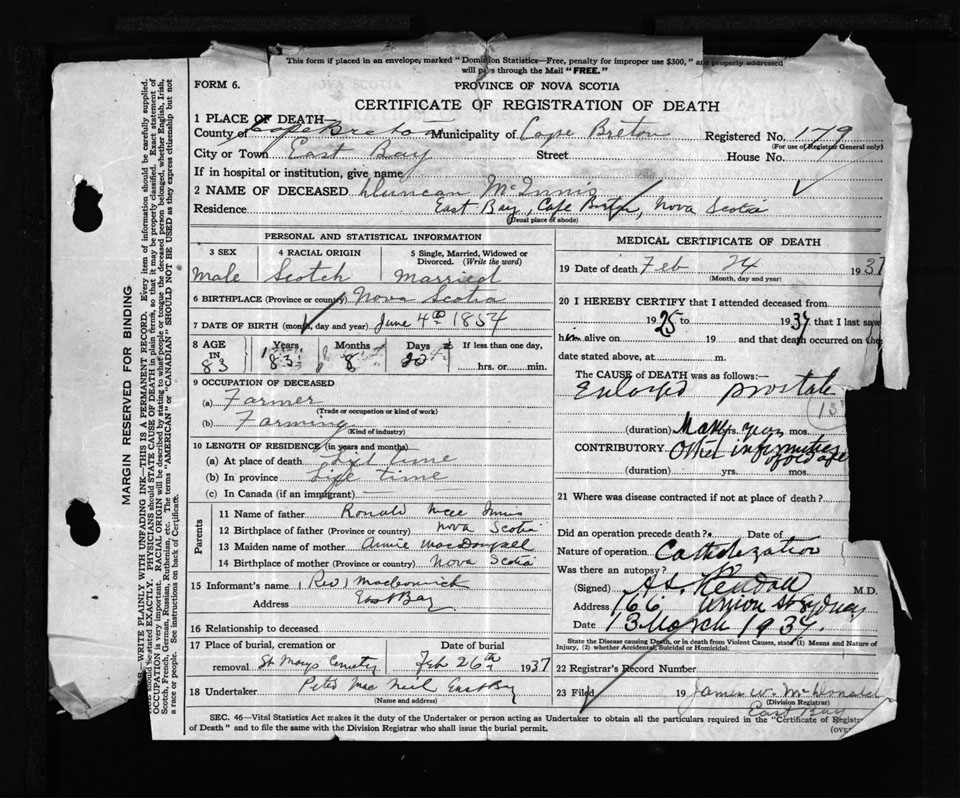 This form if placed in an envelope, marked "Dominion Statistics—Free, penalty for improper use $300," and properly addressed
will pass through the Mail "FREE."
FORM 6.
PROVINCE OF NOVA SCOTIA
CERTIFICATE OF REGISTRATION OF DEATH
1 PLACE OF DEATH
County of Cape Breton Municipality of Cape Breton Registered No. 179
(For use of Registrar General only)
City or Town East Bay Street House No.
If in hospital or institution, give name
2 NAME OF DECEASED Duncan McInnis
Residence East Bay, Cape Breton, Nova Scotia
(Usual place of abode)
PERSONAL AND STATISTICAL INFORMATION
3 SEX 4 RACIAL ORIGIN 5 Single, Married, Widowed or Divorced. (Write the word)
Male Scotch Married
6 BIRTHPLACE (Province or country) Nova Scotia
7 DATE OF BIRTH (month, day and year) June 4th 1854
8 AGE IN Years Months Days If less than one day,
83 83 8 20 hrs. or min.
9 OCCUPATION OF DECEASED
(a) Farmer
(Trade or occupation or kind of work)
(b) Farming
(Kind of industry)
10 LENGTH OF RESIDENCE (in years and months)
(a) At place of death Life time
(b) In province Life time
(c) In Canada (if an immigrant)
Parents
11 Name of father Ronald Mc Innis
12 Birthplace of father (Province or country) Nova Scotia
13 Maiden name of mother Annie MacDougall
14 Birthplace of mother (Province or country) Nova Scotia
15 Informant's name (Rev)
Address East Bay
16 Relationship to deceased
17 Place of burial, cremation or Date of burial
removal St Marys Cemetery Feb 26th 1937
18 Undertaker Peter Mac Neil East Bay
(Name and address)
MEDICAL CERTIFICATE OF DEATH
19 Date of death Feb 24 1937
(Month, day and year)
20 I HEREBY CERTIFY that I attended deceased from
1925 to 1937 that I last saw
him alive on 19 and that death occurred on the
date stated above, at m.
The CAUSE of DEATH was as follows:—
Enlarged prostate
(duration) Many yrs. mos.
CONTRIBUTORY. Other infirmities of old age
(duration) yrs. mos.
21 Where was disease contracted if not at place of death?
Did an operation precede death? Date of
Nature of operation. Catheterization
Was there an autopsy?
(Signed) A.S. Kendall M.D.
Address, 166 Union St Sydney
Date 13 March 1937.
State the Disease causing Death, or in death from Violent Causes, state (1) Means and Nature of
Injury, (2) whether Accidental, Suicidal or Homicidal.
22 Registrar's Record Number
23 Filed 19 James W. McDonald
(Division Registrar)
East Bay
SEC. 46—Vital Statistics Act makes it the duty of the Undertaker or person acting as Undertaker to obtain all the particulars required in the "Certificate of
of Death" and to file the same with the Division Registrar who shall issue the burial permit.
(OVER
MARGIN RESERVED FOR BINDING
WRITE PLAINLY WITH UNFADING INK—THIS IS A PERMANENT RECORD. Every item of information should be carefully supplied.
should be stated EXACTLY. PHYSICIANS should STATE CAUSE OF DEATH in plain terms, so that it may be properly classified. Exact statement of
OCCUPATION is very important. RACIAL ORIGIN will be described by stating to what people or tongue the deceased person belonged, whether English, Irish,
Scotch, French, German, Russian, Ruthenian, etc. The terms "AMERICAN" or "CANADIAN" SHOULD NOT BE USED as they express citizenship but not
a race or people. See instructions on back of Certificate.